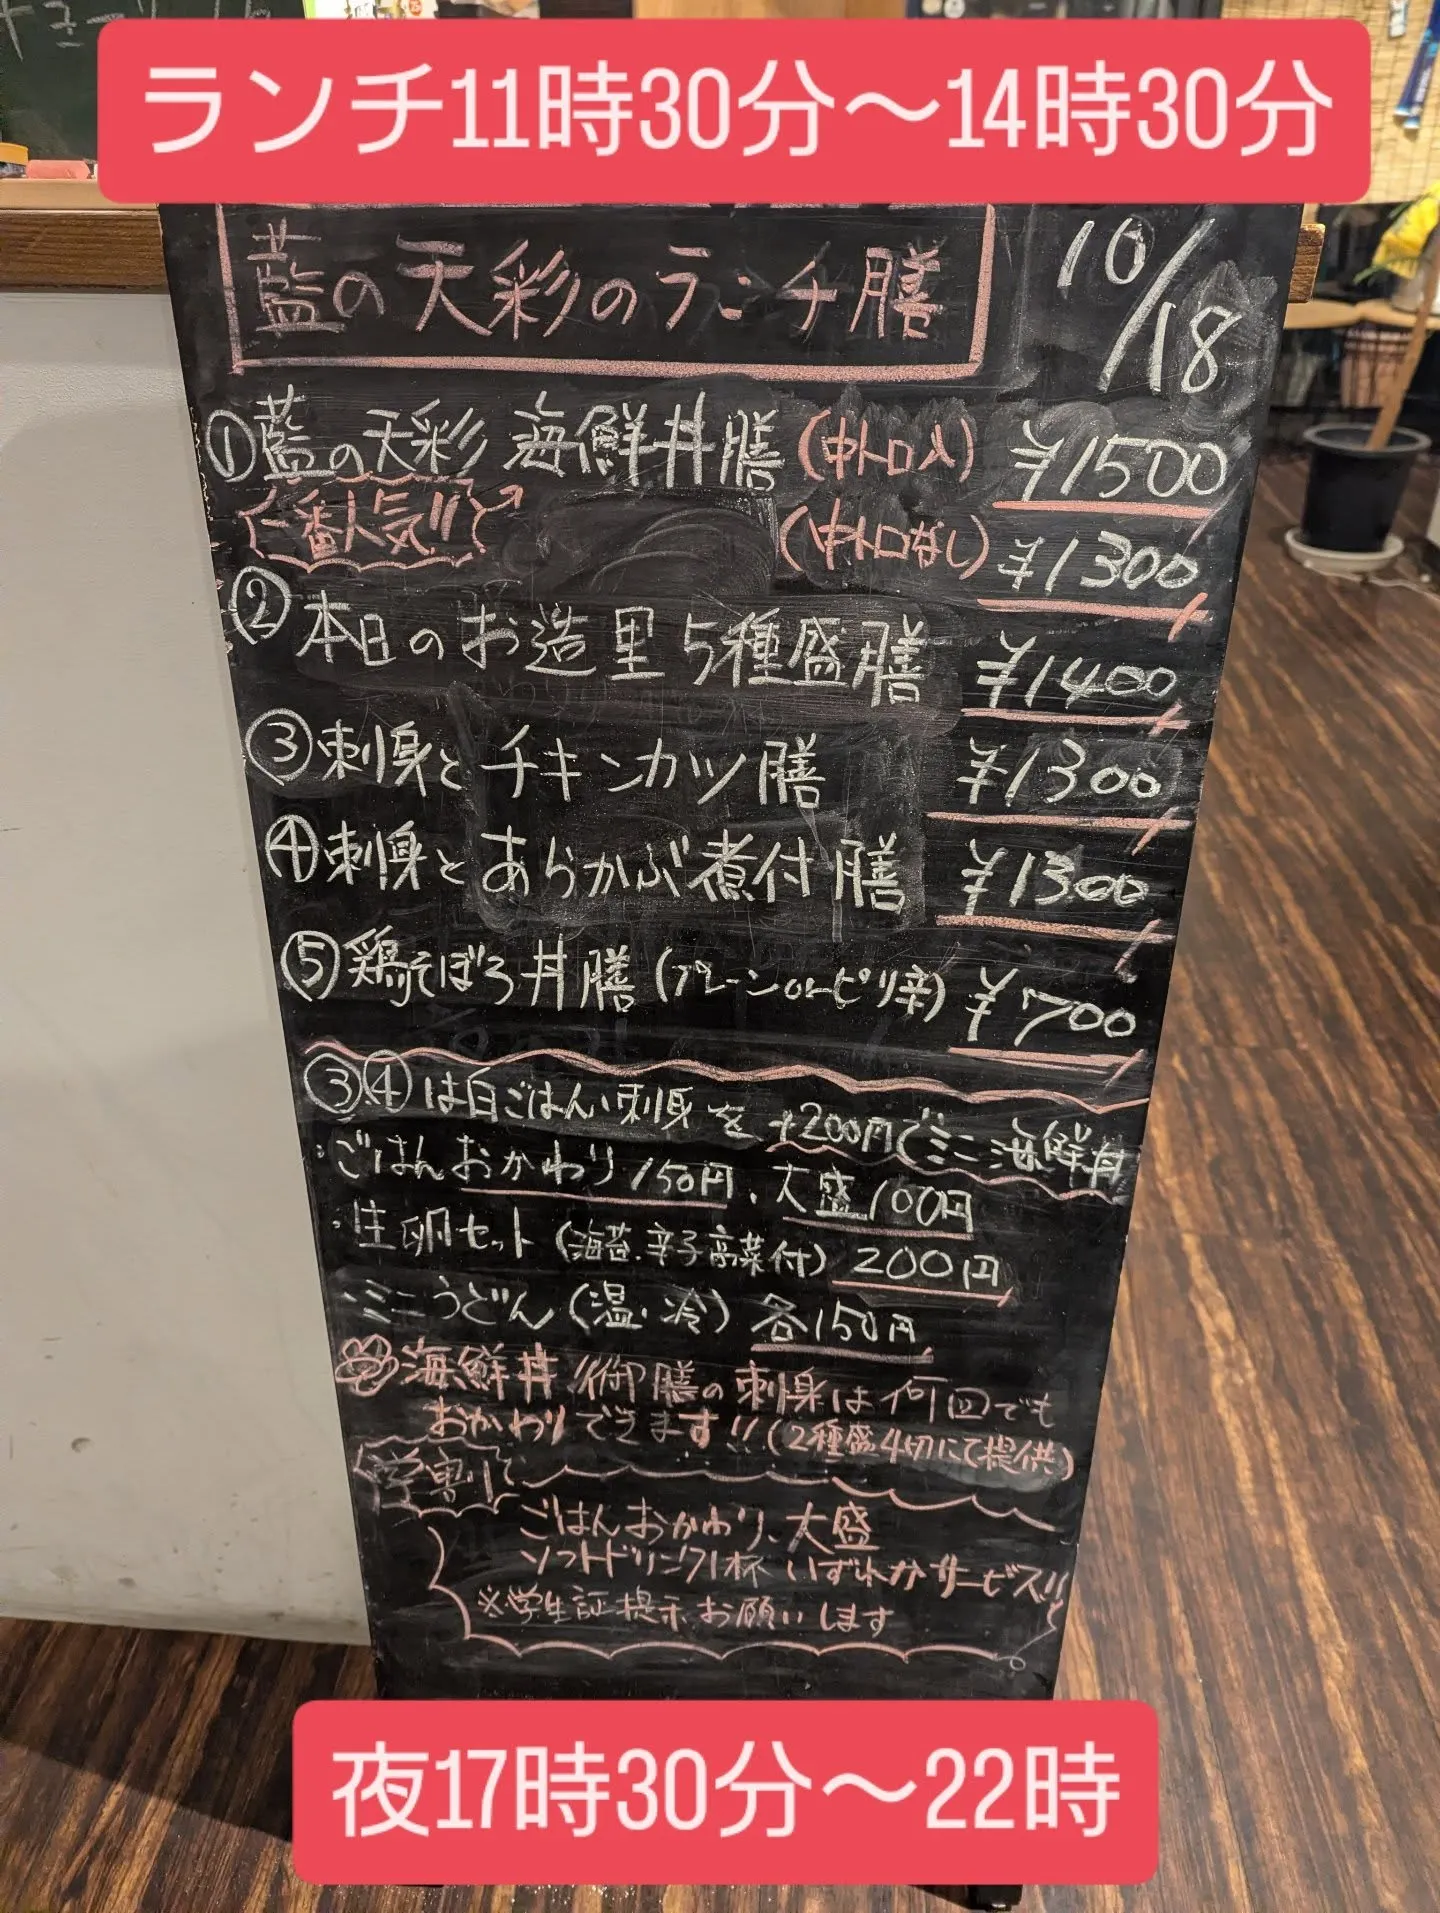 ランチ11時30分〜14時30分
藍の天彩のランチ膳
10/18
①藍の天彩 海鮮丼膳(中トロ入) ¥1500
一番人気!! (中トロなし) ¥1300
②本日のお造里5種盛膳 ¥1400
③刺身とチキンカツ膳 ¥1300
④刺身とあらかぶ煮付膳 ¥1300
⑤鶏そぼろ丼膳(プレーンorピリ辛) ¥700
③④は白ごはん、刺身を+200円でミニ海鮮丼
・ごはんおかわり150円、大盛100円
・生卵セット(海苔、辛子高菜付)200円
・ミニうどん(温・冷)各150円
海鮮丼/御膳の刺身は何回でも
おかわりできます!!(2種盛4切にて提供)
学割
ごはんおかわり、大盛
ソフトドリンク1杯 いずれかサービス!!
※学生証提示お願いします
夜17時30分〜22時